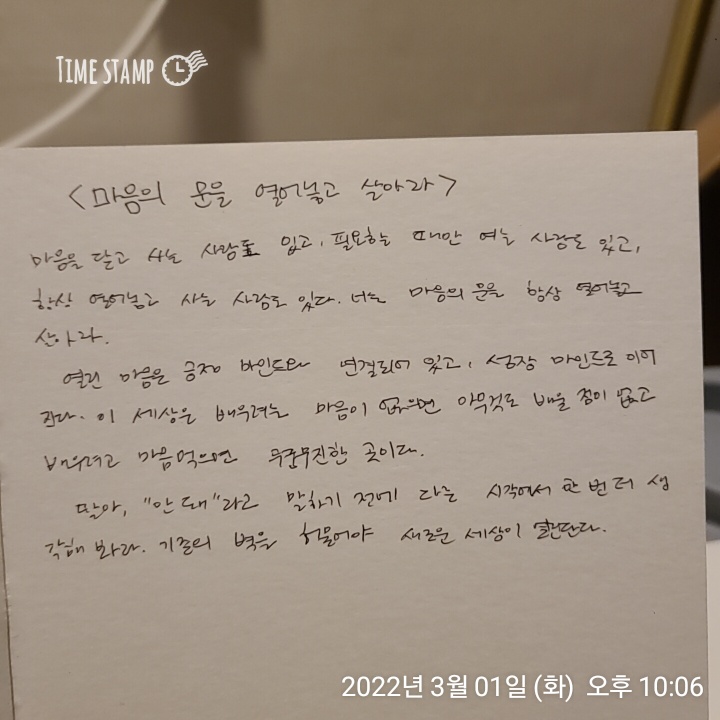 TIME STAMP
<마음의 문을 열어놓고 살아라>
마음을 닫고 사는 사람도 있고, 필요하는 때만 여는 사람도 있고,
항상 열어놓고 사는 사람도 있다. 너는 마음의 문을 항상 열어놓고
살아라.
열린 마음은 긍정 마인드와 연결되어 있고, 성장 마인드로 이어
진다. 이 세상은 배우려는 마음이 없으면 아무것도 배울 점이 없고
배우려고 마음먹으면 무궁무진한 곳이다.
딸아, "안 돼"라고 말하기 전에 다른 시각에서 한 번 더 생
각해 봐라. 기존의 벽을 허물어야 새로운 세상이 열린단다.
2022년 3월 01일 (화) 오후 10:06